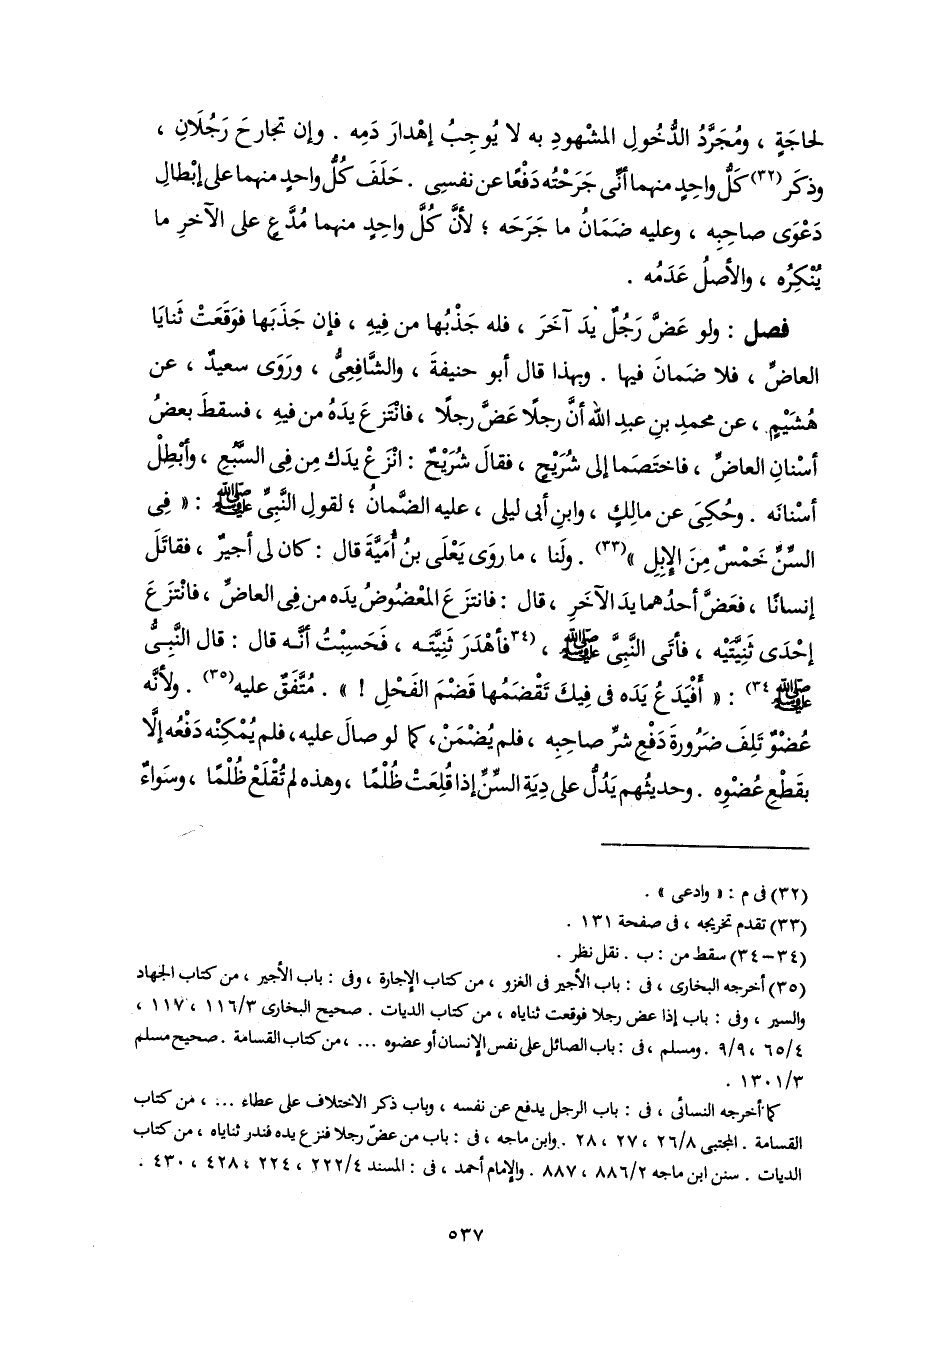 لحاجَةٍ ، ومُجَرَّدُ الدُّخولِ المشْهودِ به لا يُوجِبُ إهْدارَ دَمِه . وإن تجارحَ رَجُلَانِ ،
وذكَر(٣٢) كلُّ واحِدٍ منهما أنِّى جَرَحْتُه دَفْعًا عن نفسِى . حَلَفَ كُلُّ واحدٍ منهما على إبْطالِ
دَعْوَى صاحِبِه ، وعليه ضَمَانُ ما جَرَحَه ؛ لأنَّ كُلَّ واحِدٍ منهما مُدَّعٍ على الآخرِ ما
يُنْكِرُه ، والأصلُ عَدَمُه .
فصل : ولو عَضَّ رَجُلٌ يدَ آخَرَ ، فله جَذْبُها من فِيهِ ، فإن جَذَبَها فوَقَعَتْ ثَنايَا
العاضِّ ، فلا ضَمانَ فيها . وبهذا قال أبو حنيفةَ ، والشَّافِعِىُّ ، ورَوَى سعيدٌ ، عن
هُشَيْمٍ ، عن محمدِ بنِ عبدِ الله أنَّ رجلًا عَضَّ رجلًا ، فانْتَزعَ يدَهُ من فيهِ ، فسقطَ بعضُ
أسْنانِ العاضِّ ، فاختَصَما إلى شُرَيْحٍ ، فقالَ شُرَيْحٌ : انْزَعْ يدَك مِن فِى السَّبُعِ ، وأبْطِلْ
أسْنانَه . وحُكِىَ عن مالِكٍ ، وابنِ أبى ليلى ، عليه الضَّمانُ ؛ لقولِ النَّبِىِّ ﷺ : « فِى
السِّنِّ خَمْسٌ مِنَ الإبِلِ »(٣٣) . ولَنا ، ما روَى يَعْلَى بنُ أُمَيَّةَ قال : كان لى أجيرٌ ، فقاتَلَ
إنسانًا ، فعَضَّ أحدُهما يدَ الآخَرِ ، قال : فانتزَعَ المعْضُوضُ يدَه من فِى العاضِّ ، فانْتزَعَ
إحْدَى ثَنِيَّتَيْه ، فأتَى النَّبِىَّ ﷺ ، (٣٤فأهْدَرَ ثَنِيَّتَه ، فَحَسِبْتُ أنَّه قال : قال النَّبِىُّ
ﷺ٣٤) : « أَفَيَدَعُ يَدَه فى فِيكَ تَقْضَمُها قَضْمَ الفَحْلِ ! » . مُتَّفَقٌ عليه(٣٥) . ولأنَّه
عُضْوٌ تَلِفَ ضَرُورةَ دَفْعِ شرِّ صاحِبِه ، فلم يُضْمَنْ ، كما لو صالَ عليه ، فلم يُمْكِنْه دَفْعُه إلَّا
بقَطْعِ عُضْوِه . وحديثُهم يَدُلُّ على دِيَةِ السِّنِّ إذا قُلِعَتْ ظُلْمًا ، وهذه لم تُقْلَعْ ظُلْمًا ، وسَواءٌ
(٣٢) فى م : « وادعى » .
(٣٣) تقدم تخريجه ، فى صفحة ١٣١ .
(٣٤-٣٤) سقط من : ب . نقل نظر .
(٣٥) أخرجه البخارى ، فى : باب الأجير فى الغزو ، من كتاب الإجارة ، وفى : باب الأجير ، من كتاب الجهاد
والسير ، وفى : باب إذا عض رجلا فوقعت ثناياه ، من كتاب الديات . صحيح البخارى ٣/ ١١٦ ، ١١٧ ،
٤/ ٦٥ ، ٩/ ٩ . ومسلم ، فى : باب الصائل على نفس الإنسان أو عضوه ... ، من كتاب القسامة . صحيح مسلم
٣/ ١٣٠١ .
كما أخرجه النسائى ، فى : باب الرجل يدفع عن نفسه ، وباب ذكر الاختلاف على عطاء ... ، من كتاب
القسامة . المجتبى ٨/ ٢٦ ، ٢٧ ، ٢٨ . وابن ماجه ، فى : باب من عضّ رجلا فنزع يده فندر ثناياه ، من كتاب
الديات . سنن ابن ماجه ٢/ ٨٨٦ ، ٨٨٧ . والإمام أحمد ، فى : المسند ٤/ ٢٢٢ ، ٢٢٤ ، ٤٢٨ ، ٤٣٠ .
٥٣٧